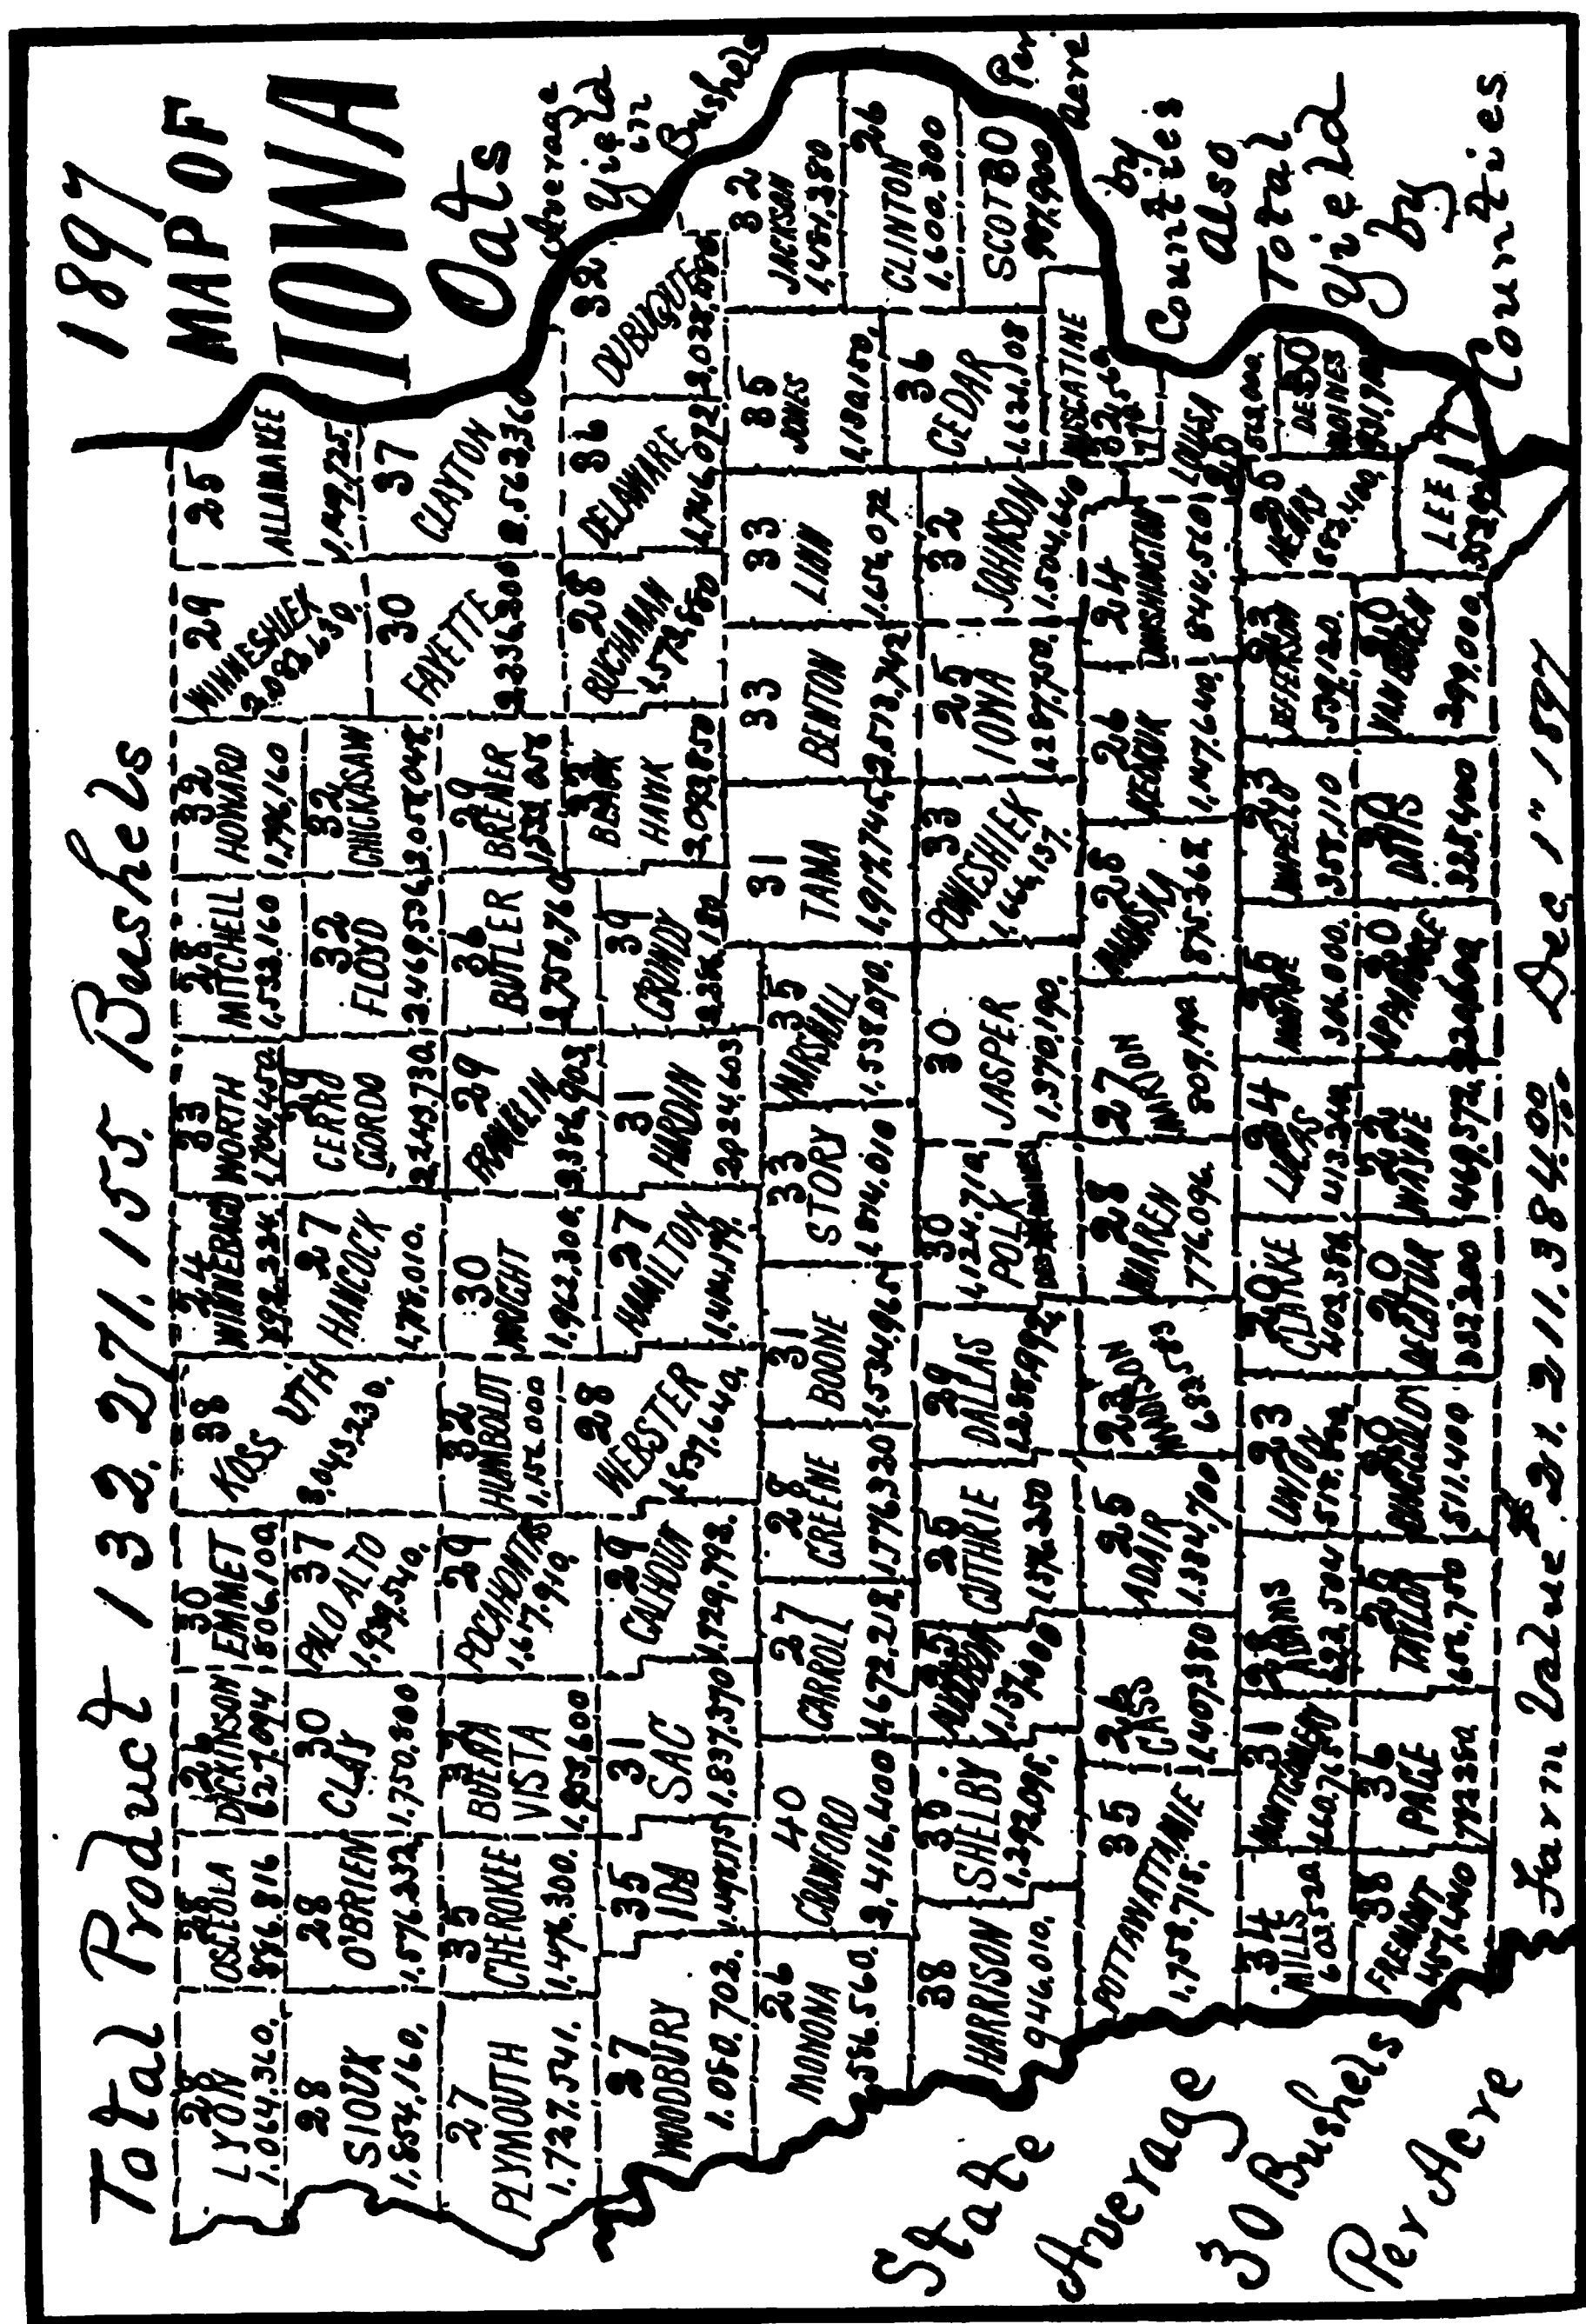 1897
MAP OF
IOWA
Oats
Average
Yield
in
Bushels
Per
Acre
by
Counties
Also
Total
Yield
by
Counties
Total Product 132,271,155. Bushels
28
LYON
1,064,360.
28
OSCEOLA
886,816
26
DICKINSON
627,094
30
EMMET
806,100,
38
KOSSUTH
3,043,230.
24
WINNEBAGO
892,224.
33
WORTH
1,704,450.
28
MITCHELL
1,532,160
32
HOWARD
1,796,160
29
WINNESHIEK
2,083,630.
25
ALLAMAKEE
1,149,725.
28
SIOUX
1,854,160,
28
O'BRIEN
1,576,232,
30
CLAY
1,750,800
37
PALO ALTO
1,939,540.
27
HANCOCK
1,718,010.
29
CERRO
GORDO
2,249,730.
32
FLOYD
2,469,536,
32
CHICKASAW
2,057,048.
30
FAYETTE
2,336,200
37
CLAYTON
2,562,360
27
PLYMOUTH
1,727,541.
35
CHEROKEE
1,476,300.
BUENA
VISTA
29
POCAHONTAS
1,617,910.
32
HUMBOLDT
1,156,000
30
WRIGHT
1,962,300.
29
FRANKLIN
2,386,903,
36
BUTLER
2,750,760
29
BREMER
BLACK
HAWK
2,093,850
28
BUCHANAN
1,572,880
36
DELAWARE
1,746,072
32
DUBUQUE
27
WOODBURY
1,080,702.
35
IDA
31
SAC
1,837,370
29
CALHOUN
1,729,792.
28
WEBSTER
1,837,640,
27
HAMILTON
31
HARDIN
2,024,603
39
GRUNDY
31
TAMA
1,917,746,
33
BENTON
2,573,742
33
LINN
1,656,072
35
JONES
1,130,150,
32
JACKSON
26
MONONA
586,560.
40
CRAWFORD
2,416,400
27
CARROLL
1,672,218,
28
GREENE
1,776,320
31
BOONE
1,534,965,
33
STORY
1,814,010
35
MARSHALL
1,538,070.
26
CLINTON
1,600,300
38
HARRISON
946,010.
35
SHELBY
1,292,095,
25
AUDUBON
25
GUTHRIE
1,376,350
29
DALLAS
1,288,992,
30
POLK
1,124,710,
30
JASPER
1,370,190.
33
POWESHIEK
1,666,137.
25
IONA
1,287,750.
32
JOHNSON
1,504,640
36
CEDAR
1,621,108
SCOTT 30
MUSCATINE
35
POTTAWATTAMIE
1,758,715.
26
CASS
1,407,380
25
ADAIR
1,384,700
23
MADISON
682,583
28
WARREN
776,096.
27
MARION
809,190.
28
MAHASKA
875,368,
26
KEOKUK
1,147,640,
24
WASHINGTON
844,560
LOUISA
562,000.
34
MILLS
603,520
31
MONTGOMERY
28
ADAMS
622,504
23
UNION
20
CLARKE
24
LUCAS
25
MONROE
306,000.
23
WAPELLO
358,110
23
JEFFERSON
539,120.
25
HENRY
653,400,
30
DES
MOINES
38
FREMONT
457,440
36
PAGE
25
TAYLOR
656,750
20
RINGGOLD
511,400
20
DECATUR
22
WAYNE
469,372,
20
APPANOOSE
20
DAVIS
325,400
20
VAN BUREN
299,000,
LEE 17
State
Average
30 Bushels
Per Acre
Farm Value $21,211,384.00 Dec. 1" 1897